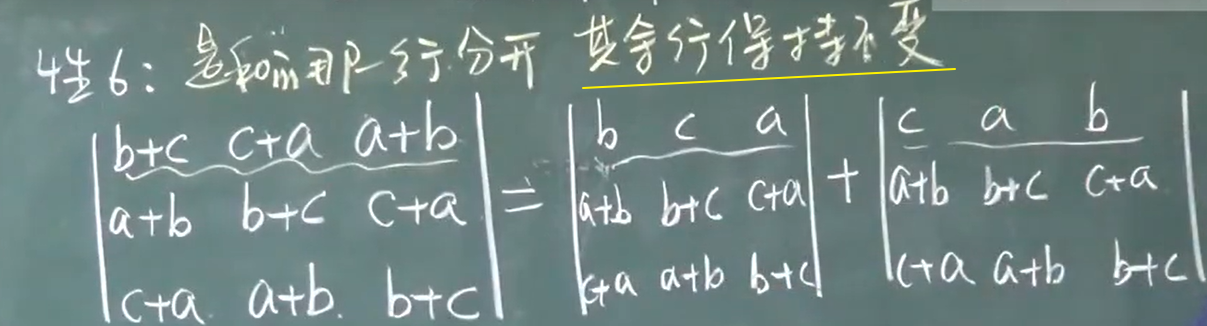 性6：是和的那一行分开 其余行保持不变
|b+c c+a a+b| = |b c a| + |c a b|
|a+b b+c c+a| |a+b b+c c+a| |a+b b+c c+a|
|c+a a+b. b+c| |c+a a+b b+c| |c+a a+b b+c|